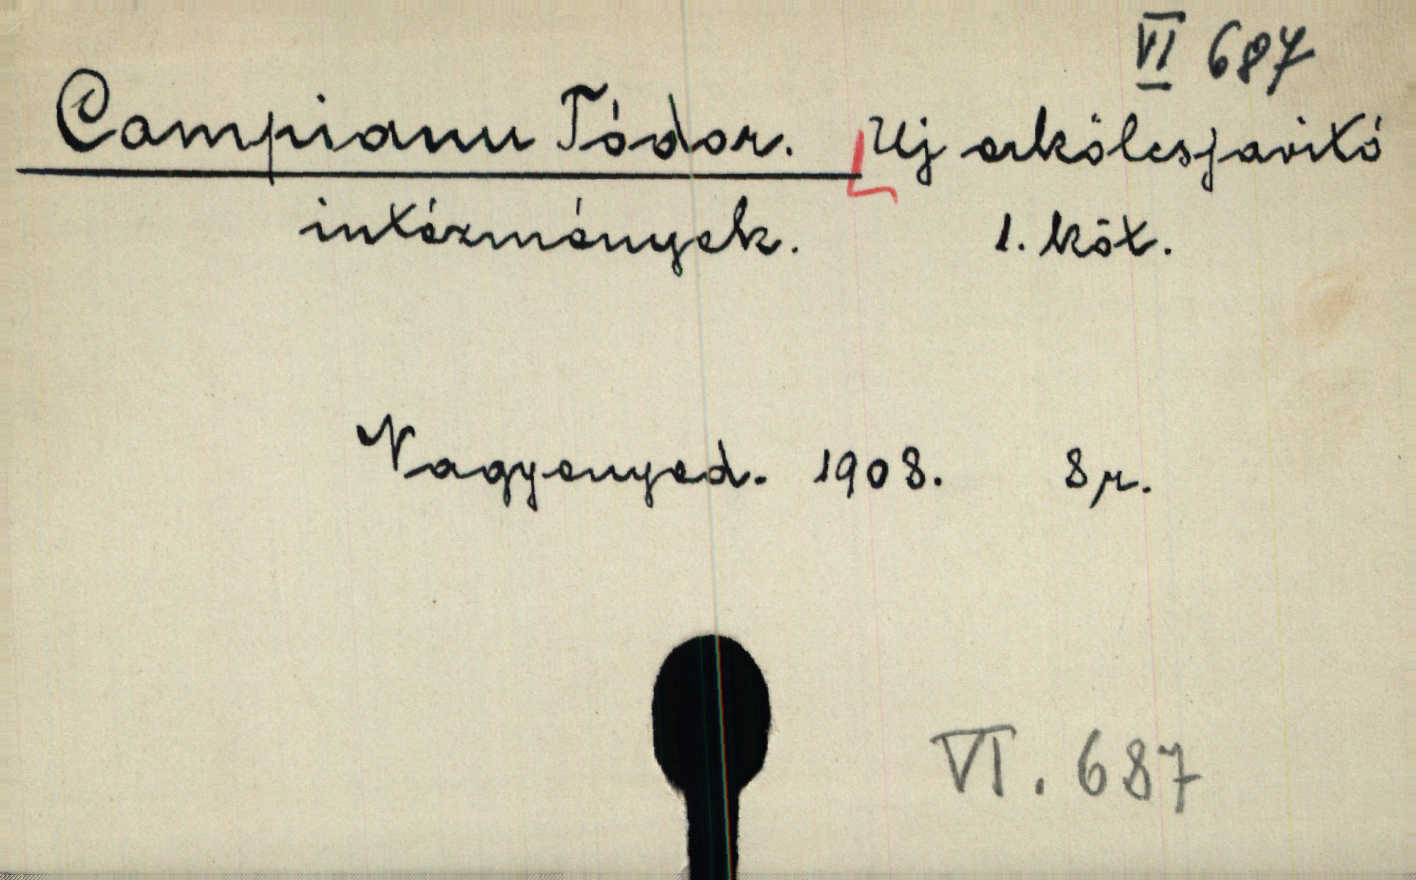 VI 687
Campianu Tódor. Uj erkölcsjavitó
intézmények. 1. köt.
Nagyenyed. 1908. 8r.
VI. 687